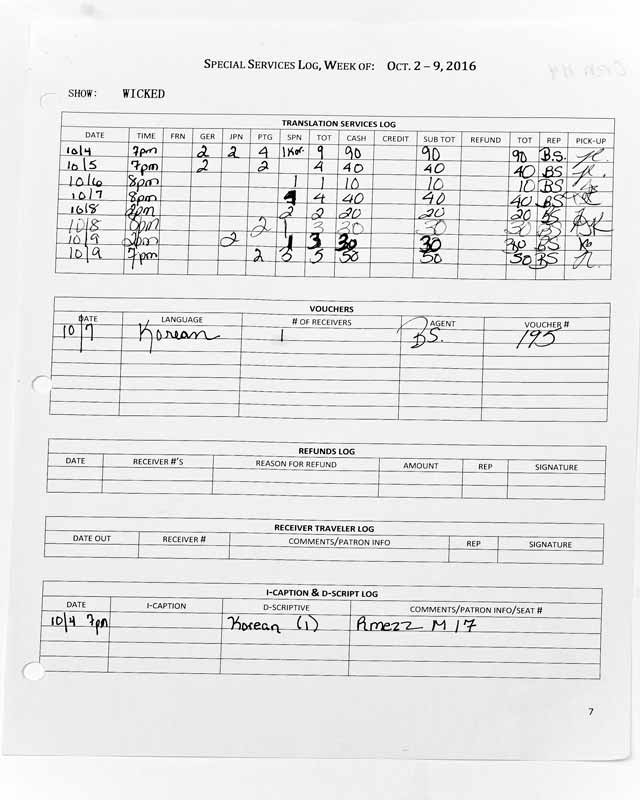 SPECIAL SERVICES LOG, WEEK OF: OCT. 2 – 9, 2016
SHOW: WICKED
TRANSLATION SERVICES LOG
DATE TIME FRN GER JPN PTG SPN TOT CASH CREDIT SUB TOT REFUND TOT REP PICK-UP
10/4 7pm 2 2 4 1 Kor. 9 90 90 90 B.S.
10/5 7pm 2 2 4 40 40 40 BS
10/6 8pm 1 1 10 10 10 BS
10/7 8pm 4 4 40 40 40 BS
10/8 2pm 2 2 20 20 20 BS
10/8 8pm 2 1 3 30 30 30 BS
10/9 2pm 2 1 3 30 30 30 BS
10/9 7pm 2 3 5 50 50 50 BS
VOUCHERS
DATE LANGUAGE # OF RECEIVERS AGENT VOUCHER #
10/7 Korean 1 BS. 195
REFUNDS LOG
DATE RECEIVER #'S REASON FOR REFUND AMOUNT REP SIGNATURE
RECEIVER TRAVELER LOG
DATE OUT RECEIVER # COMMENTS/PATRON INFO REP SIGNATURE
I-CAPTION & D-SCRIPT LOG
DATE I-CAPTION D-SCRIPTIVE COMMENTS/PATRON INFO/SEAT #
10/4 7pm Korean (1) Rmezz M 17
7